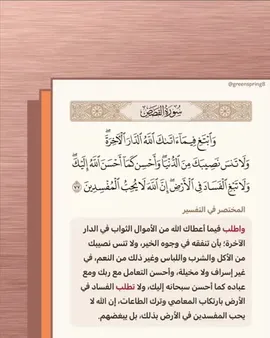 @greenspring8
سُورَةُ القَصَصِ
وَٱبْتَغِ فِيمَآ ءَاتَىٰكَ ٱللَّهُ ٱلدَّارَ ٱلْءَاخِرَةَۖ
وَلَا تَنسَ نَصِيبَكَ مِنَ ٱلدُّنْيَاۖ وَأَحْسِن كَمَآ أَحْسَنَ ٱللَّهُ إِلَيْكَۖ
وَلَا تَبْغِ ٱلْفَسَادَ فِي ٱلْأَرْضِۖ إِنَّ ٱللَّهَ لَا يُحِبُّ ٱلْمُفْسِدِينَ ٧٧
المختصر في التفسير
واطلب فيما أعطاك الله من الأموال الثواب في الدار
الآخرة؛ بأن تنفقه في وجوه الخير، ولا تنس نصيبك
من الأكل والشرب واللباس وغير ذلك من النعم، في
غير إسراف ولا مخيلة، وأحسن التعامل مع ربك ومع
عباده كما أحسن سبحانه إليك، ولا تطلب الفساد في
الأرض بارتكاب المعاصي وترك الطاعات، إن الله لا
يحب المفسدين في الأرض بذلك، بل يبغضهم.